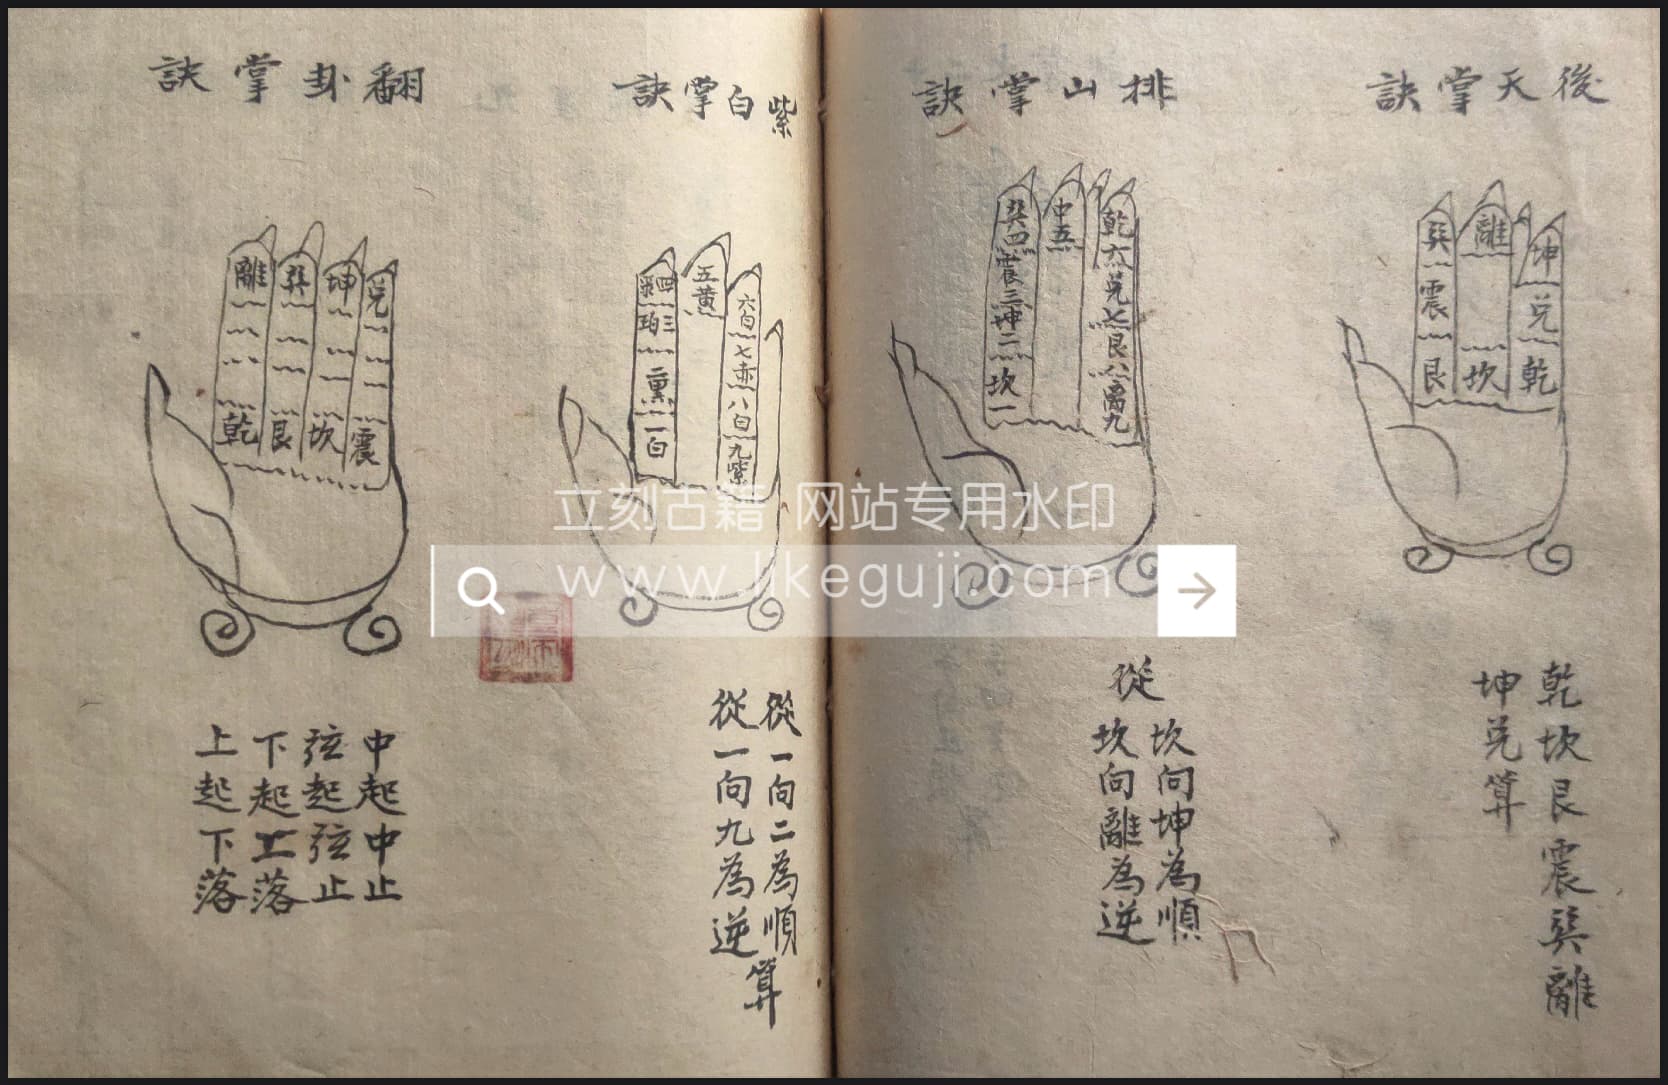 後天掌訣
巽
震
艮
離
坎
坤
兌
乾
乾坎艮震巽離
坤兌算
排山掌訣
巽四
震三
坤二
坎一
中五
乾六
兌七
艮八
离九
從
坎向坤為順
坎向離為逆
紫白掌訣
四
三
一白
五黃
六白
七赤
八白
九紫
從一向二為順
從一向九為逆
算
翻卦掌訣
離
乾
巽
艮
坤
坎
兌
震
中起中止
弦起弦止
下起上落
上起下落
立刻古籍 网站专用水印
www.likeguji.com